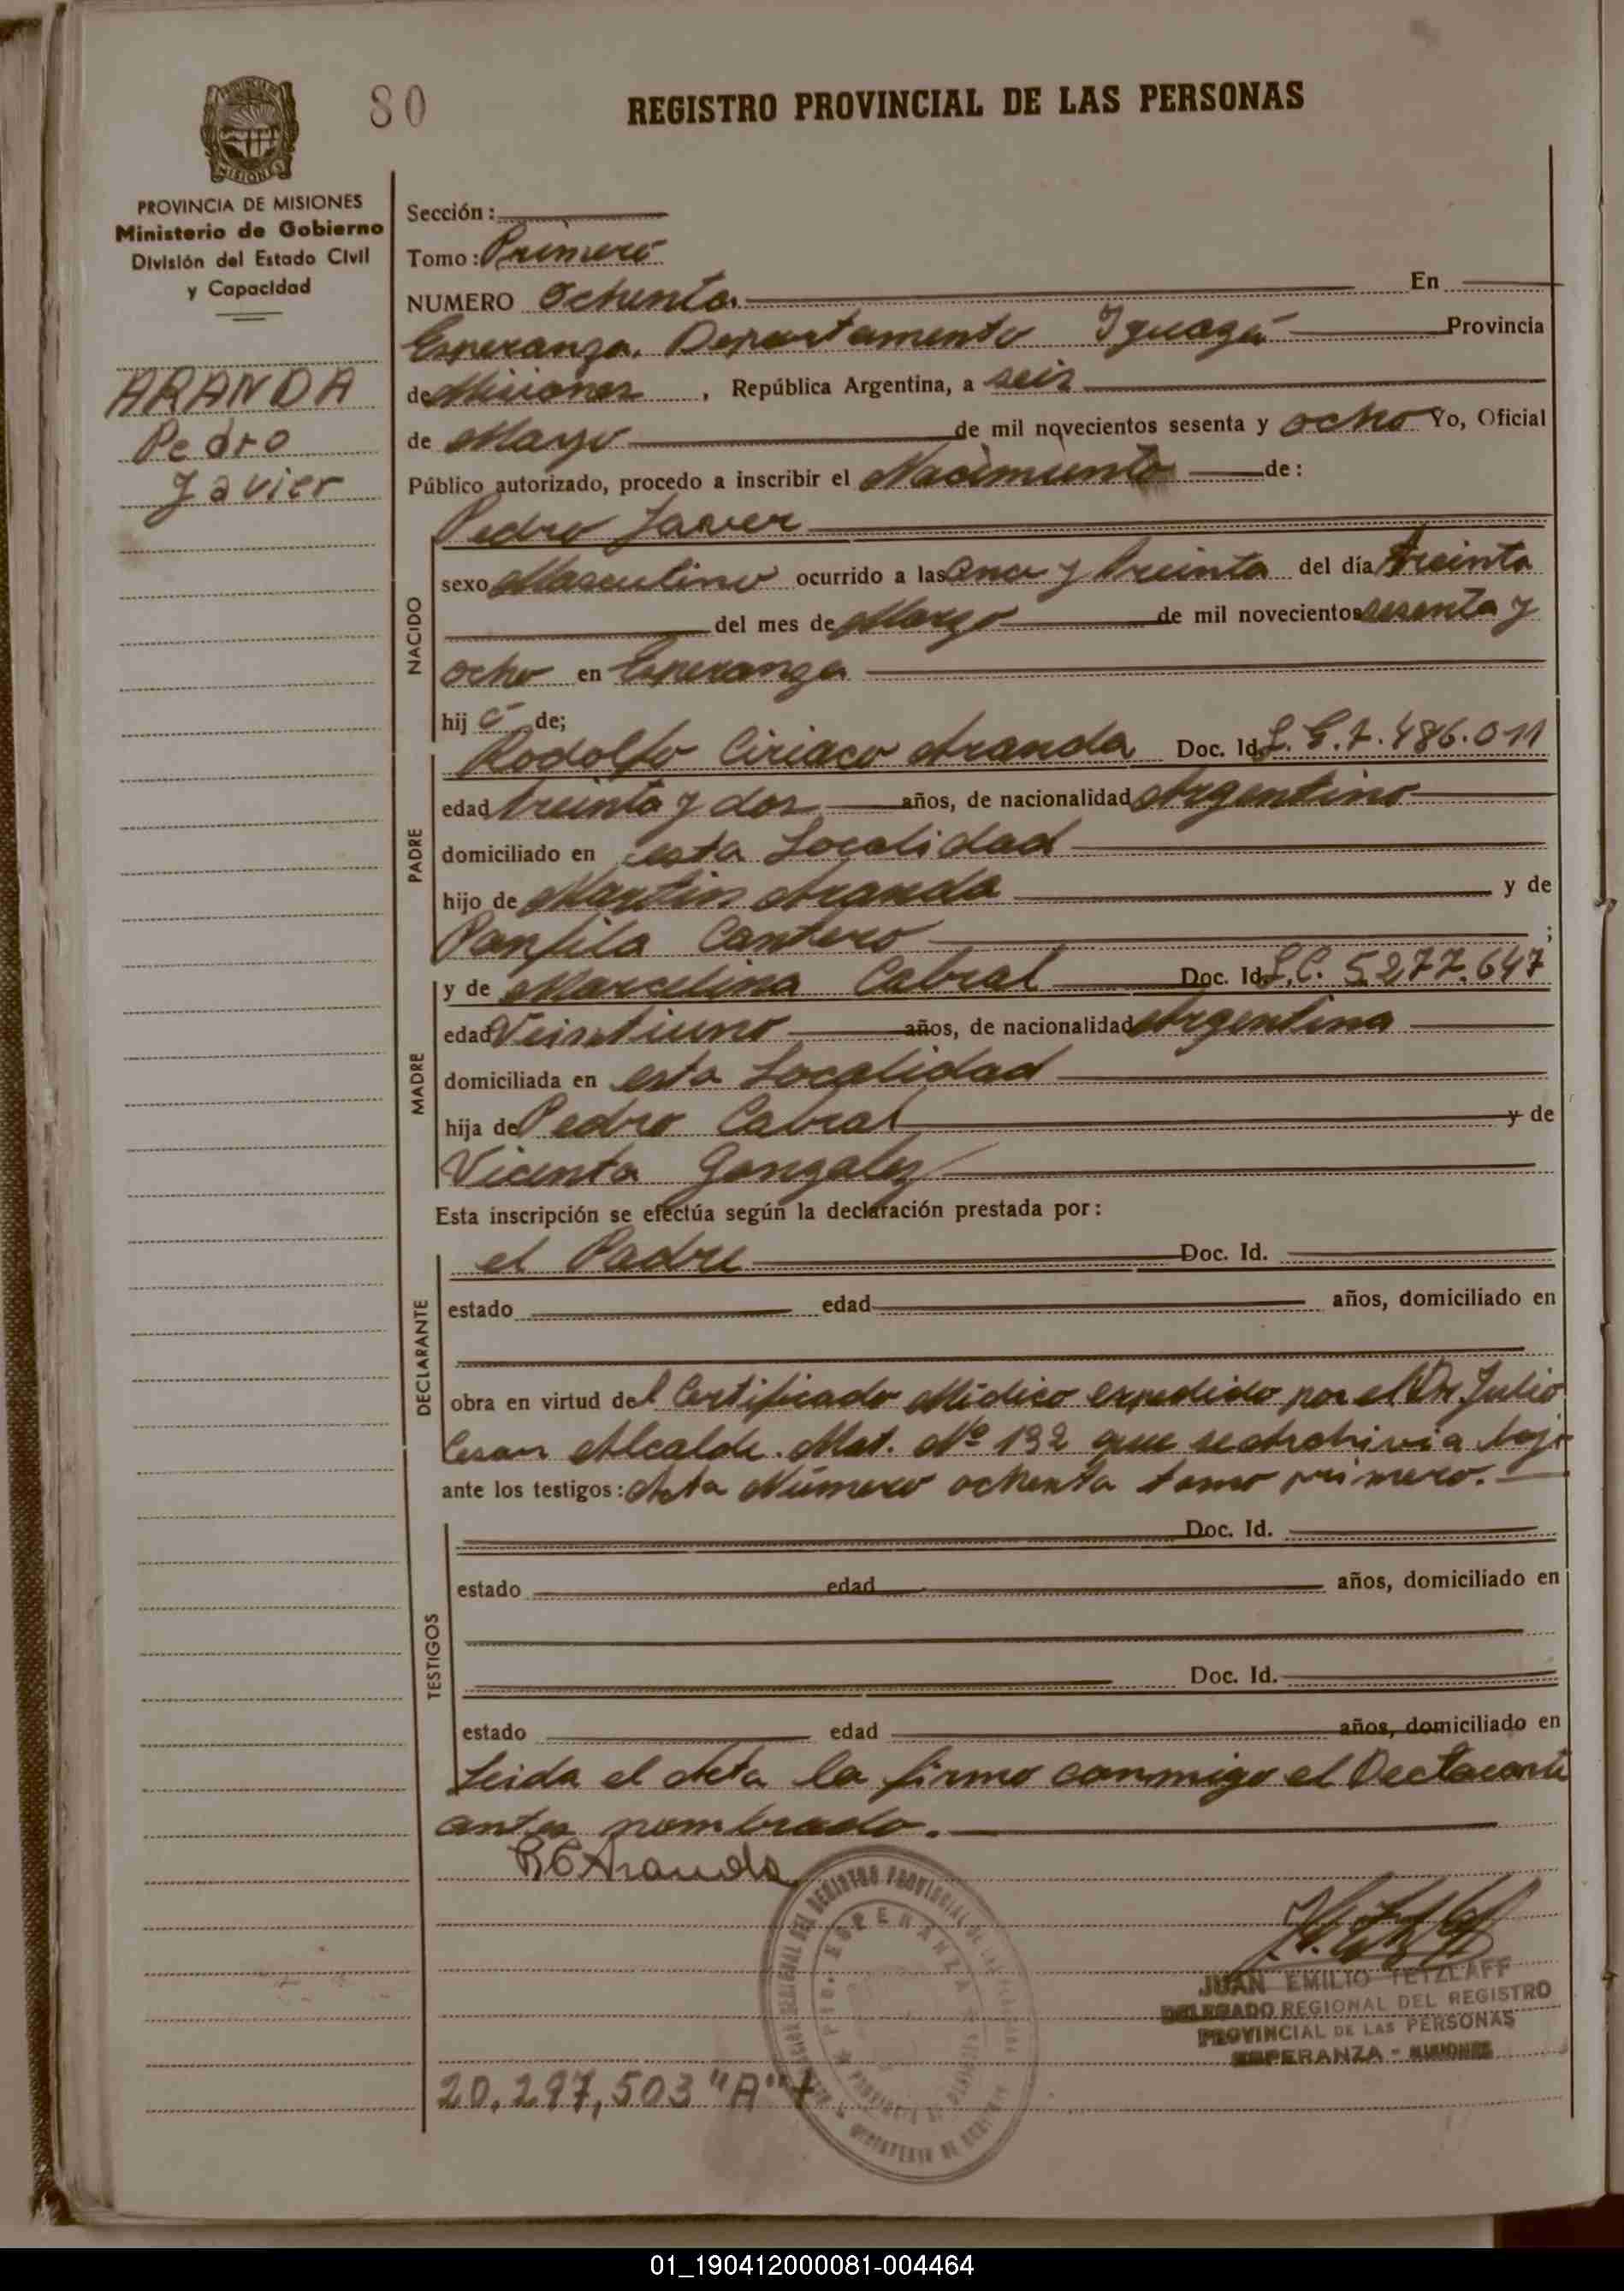 80
REGISTRO PROVINCIAL DE LAS PERSONAS
MISIONES
PROVINCIA DE MISIONES
Ministerio de Gobierno
División del Estado Civil
y Capacidad
ARANDA
Pedro
Javier
Sección :
Tomo : Primero
NUMERO Ochenta En
Esperanza. Departamento Iguazú Provincia
de Misiones , República Argentina, a seis
de Mayo de mil novecientos sesenta y ocho Yo, Oficial
Público autorizado, procedo a inscribir el Nacimiento de :
NACIDO
Pedro Javier
sexo Masculino ocurrido a las once y treinta del día treinta
del mes de Marzo de mil novecientos sesenta y
ocho en Esperanza
hij o de;
PADRE
Rodolfo Ciriaco Aranda Doc. Id. L.E. 7.486.011
edad treinta y dos años, de nacionalidad Argentino
domiciliado en esta Localidad
hijo de Martin Aranda y de
Panfila Cantero ;
MADRE
y de Marcelina Cabral Doc. Id. L.C. 5.277.647
edad Veintiuno años, de nacionalidad Argentina
domiciliada en esta Localidad
hija de Pedro Cabral y de
Vicenta Gonzalez
Esta inscripción se efectúa según la declaración prestada por :
DECLARANTE
el Padre Doc. Id.
estado edad años, domiciliado en
obra en virtud del Certificado Médico expedido por el Dr. Julio
Cesar Alcalde. Mat. Nº 132 que se archiva bajo
ante los testigos : Acta Número ochenta tomo primero.
TESTIGOS
Doc. Id.
estado edad años, domiciliado en
Doc. Id.
estado edad años, domiciliado en
Leida el Acta la firma conmigo el Declarante
antes nombrado.
R C Aranda
REGIONAL DEL REGISTRO PROVINCIAL DE LAS PERSONAS
ESPERANZA
JUAN EMILIO TETZLAFF
DELEGADO REGIONAL DEL REGISTRO
PROVINCIAL DE LAS PERSONAS
ESPERANZA - MISIONES
20.297.503 "A"
01_190412000081-004464